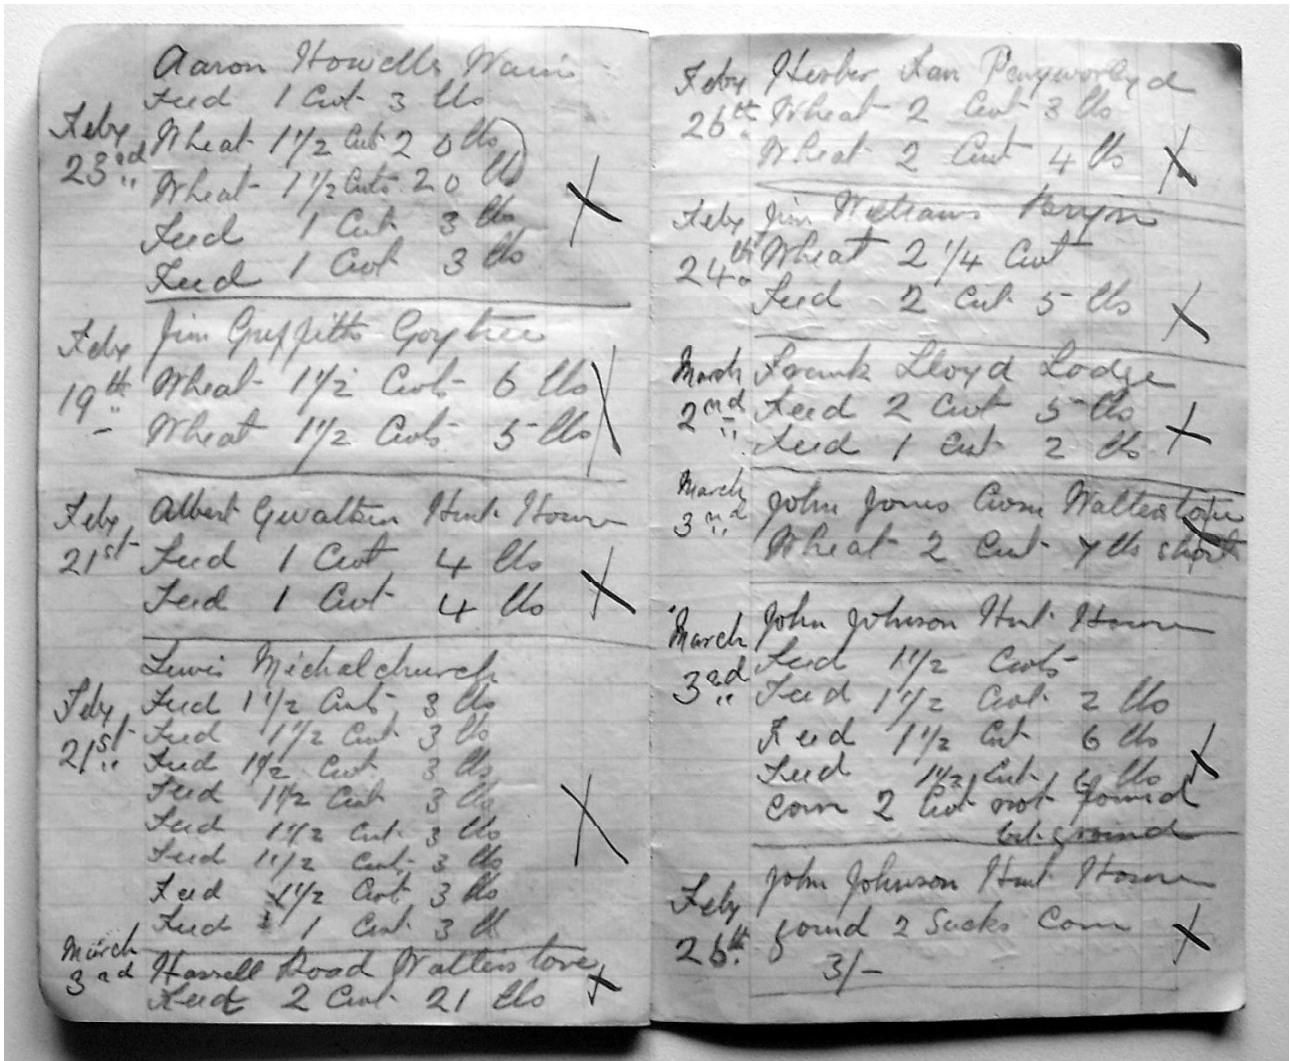 Aaron Howells Wain
Feed 1 Cwt 3 lbs
Feby 23rd Wheat 1 1/2 Cwt 20 lbs
Wheat 1 1/2 Cwts 20 lbs
Feed 1 Cwt 3 lbs
Feed 1 Cwt 3 lbs
Feby 19th Jim Griffiths Goytree
Wheat 1 1/2 Cwts 6 lbs
Wheat 1 1/2 Cwts 5 lbs
Feby 21st Albert Gwatkin Hunt House
Feed 1 Cwt 4 lbs
Feed 1 Cwt 4 lbs
Lewis Michalchurch
Feby 21st Feed 1 1/2 Cwts 3 lbs
Feed 1 1/2 Cwt 3 lbs
Feed 1 1/2 Cwt 3 lbs
Feed 1 1/2 Cwt 3 lbs
Feed 1 1/2 Cwt 3 lbs
Feed 1 1/2 Cwt 3 lbs
Feed 1 1/2 Cwt 3 lbs
Feed 1 Cwt 3 lb
March 3rd Harrell Road Walterstone
Feed 2 Cwt 21 lbs
Feby 26th Herber Fan
Wheat 2 Cwt 3 lbs
Wheat 2 Cwt 4 lbs
Feby 24th Jim Williams
Wheat 2 1/4 Cwt
Feed 2 Cwt 5 lbs
March 2nd Frank Lloyd Lodge
Feed 2 Cwt 5 lbs
Feed 1 Cwt 2 lbs
March 3rd John Jones Cwm Walterstone
Wheat 2 Cwt 7 lbs short
March 3rd John Johnson Hunt House
Feed 1 1/2 Cwts
Feed 1 1/2 Cwt 2 lbs
Feed 1 1/2 Cwt 6 lbs
Feed 1 1/2 Cwt 6 lbs
Corn 2 Cwt not found
but ground
Feby 26th John Johnson Hunt House
gound 2 Sacks Corn
3/-